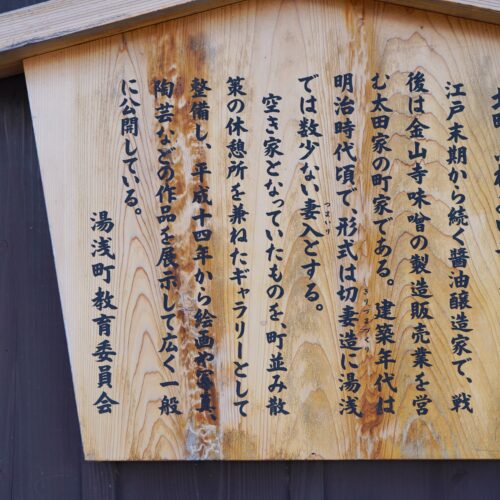 江戸末期から続く醤油醸造家で、戦
後は金山寺味噌の製造販売業を営
む太田家の町家である。建築年代は
明治時代頃で、形式は切妻造に湯浅
きりづまづくり
では数少ない妻入とする。
つまいり
空き家となっていたものを、町並み散
策の休憩所を兼ねたギャラリーとして
整備し、平成十四年から絵画や写真、
陶芸などの作品を展示して広く一般
に公開している。
湯浅町教育委員会